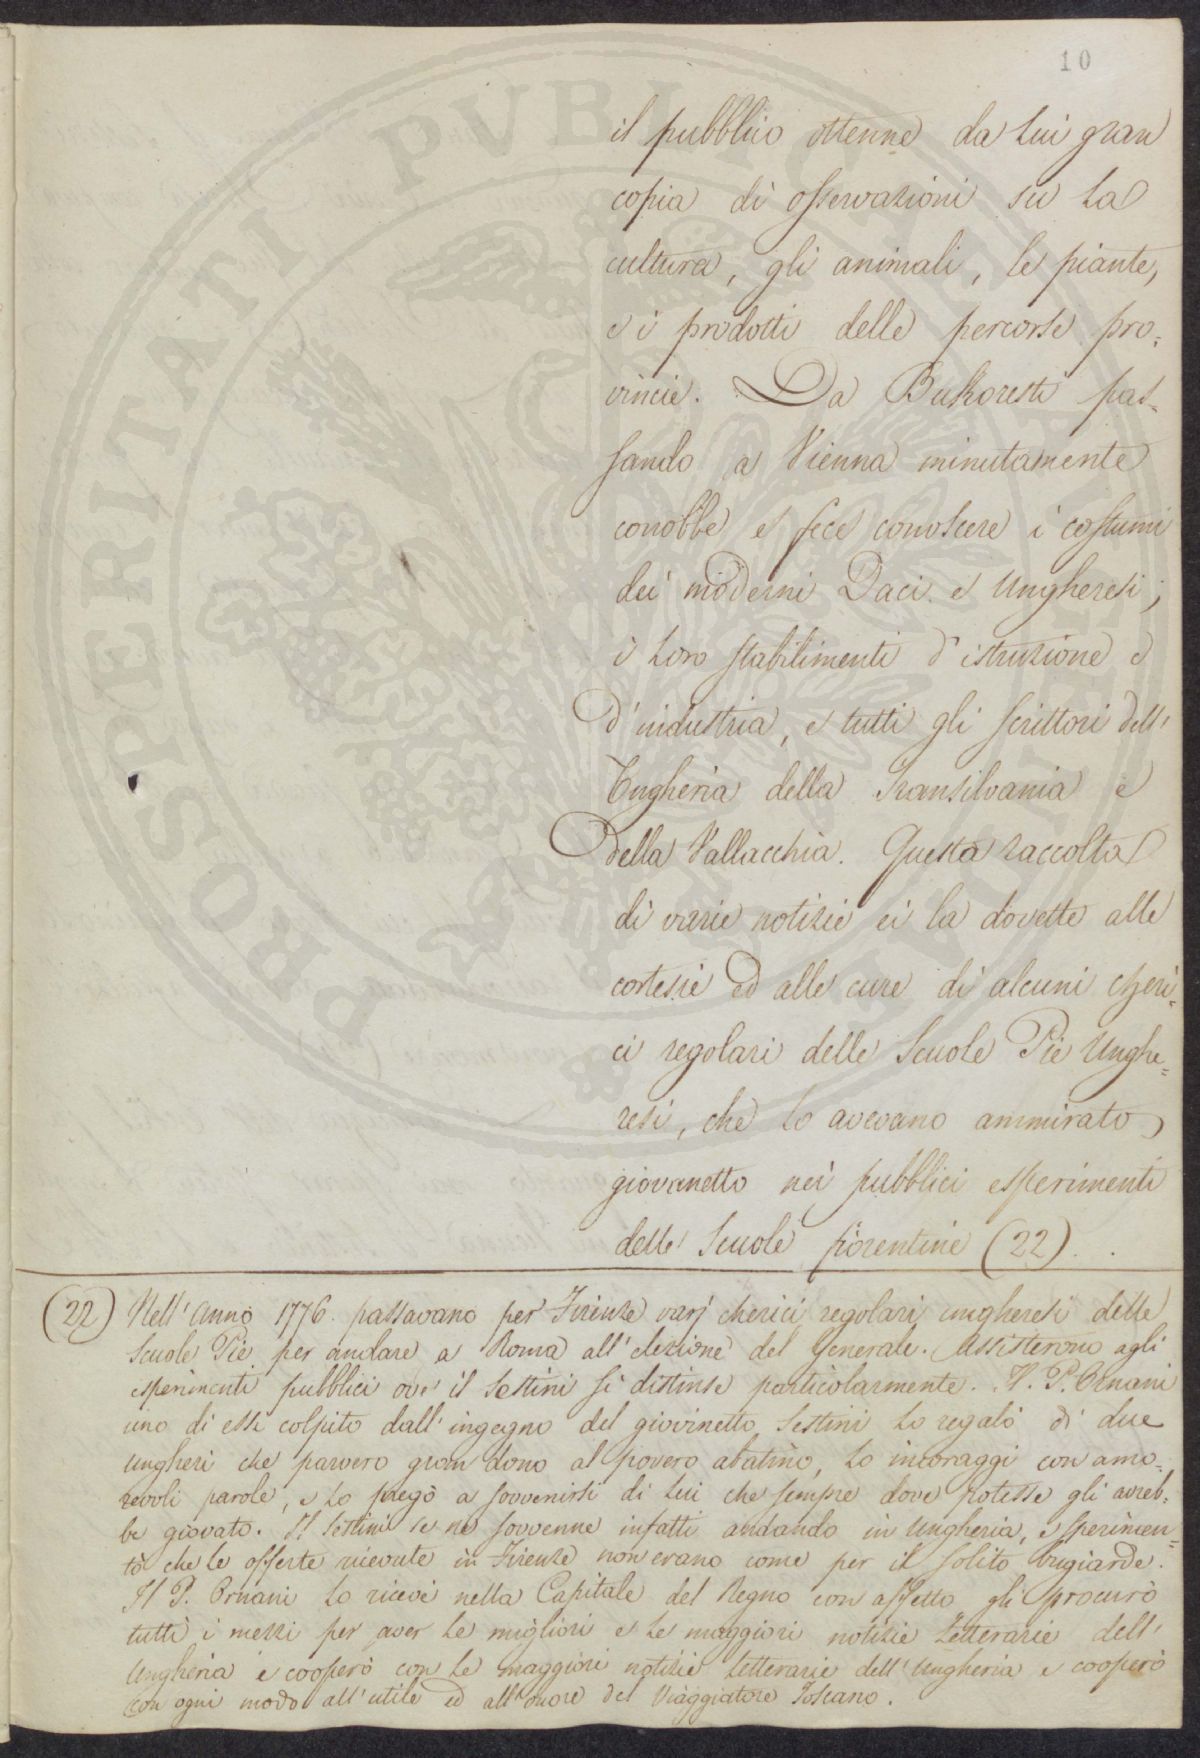 10
il pubblico ottenne da lui gran
copia di osservazioni su la
cultura, gli animali, le piante,
e i prodotti delle percorse pro=
vincie. Da Bukoresti pas=
sando a Vienna minutamente
conobbe e fece conoscere i costumi
dei moderni Daci e Ungheresi;
i loro stabilimenti d'istruzione e
d'industria, e tutti gli scrittori dell'
Ungheria della Transilvania e
della Vallacchia. Questa raccolta
di varie notizie ei la dovette alle
cortesie ed alle cure di alcuni cheri=
ci regolari delle Scuole Pie Unghe=
resi, che lo avevano ammirato
giovanetto nei pubblici esperimenti
delle Scuole fiorentine (22).
(22) Nell'anno 1776 passavano per Firenze varj cherici regolari ungheresi delle
Scuole Pie per andare a Roma all'elezione del Generale. Assisterono agli
esperimenti pubblici ove il Sestini si distinse particolarmente. Il P. Ornani
uno di essi colpito dall'ingegno del giovinetto Sestini lo regalò di due
ungheri che parvero gran dono al povero abatino, lo incoraggì con amo=
revoli parole, e lo pregò a sovvenirsi di lui che sempre dove potesse gli avreb=
be giovato. Il Sestini se ne sovvenne infatti andando in Ungheria, e sperimen=
tò che le offerte ricevute in Firenze non erano come per il solito bugiarde.
Il P. Ornani lo ricevè nella Capitale del Regno con affetto gli procurò
tutti i mezzi per aver le migliori e le maggiori notizie letterarie dell'
Ungheria e cooperò con le maggiori notizie letterarie dell'Ungheria e cooperò
con ogni modo all'utile ed all'onore del Viaggiatore Toscano.
PROSPERITATI PVBLICAE